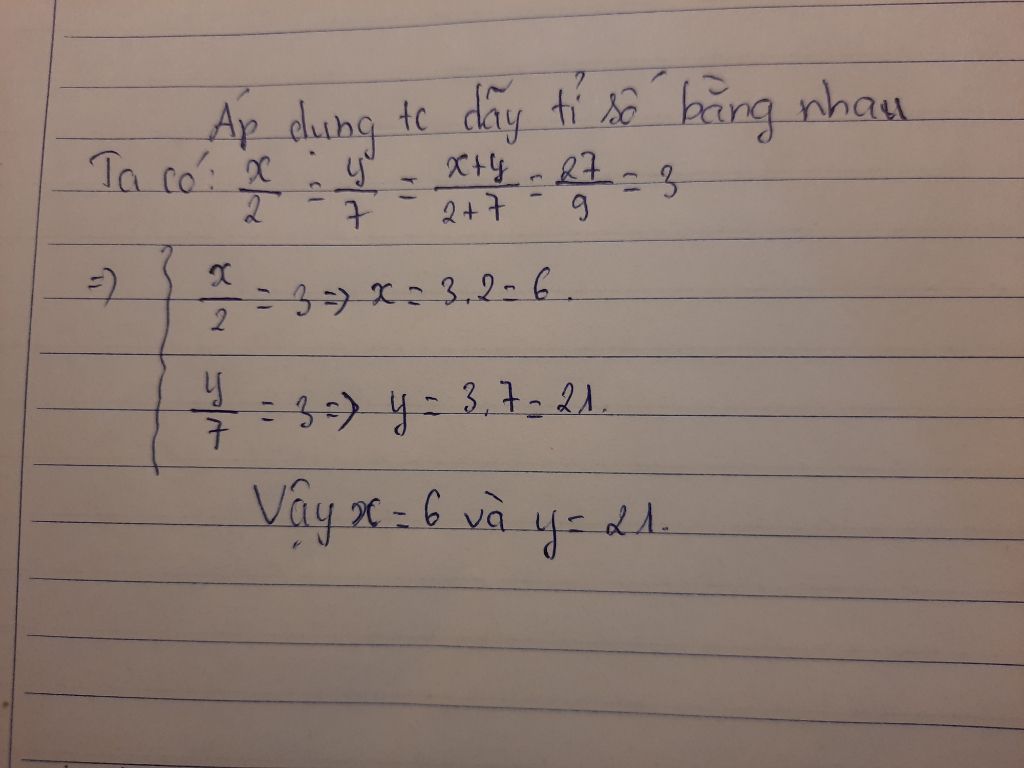 Áp dụng tc dãy tỉ số bằng nhau
Ta có: x/2 = y/7 = x+y/2+7 = 27/9 = 3
=> { x/2 = 3 => x = 3.2 = 6.
y/7 = 3 => y = 3.7 = 21.
Vậy x = 6 và y = 21.